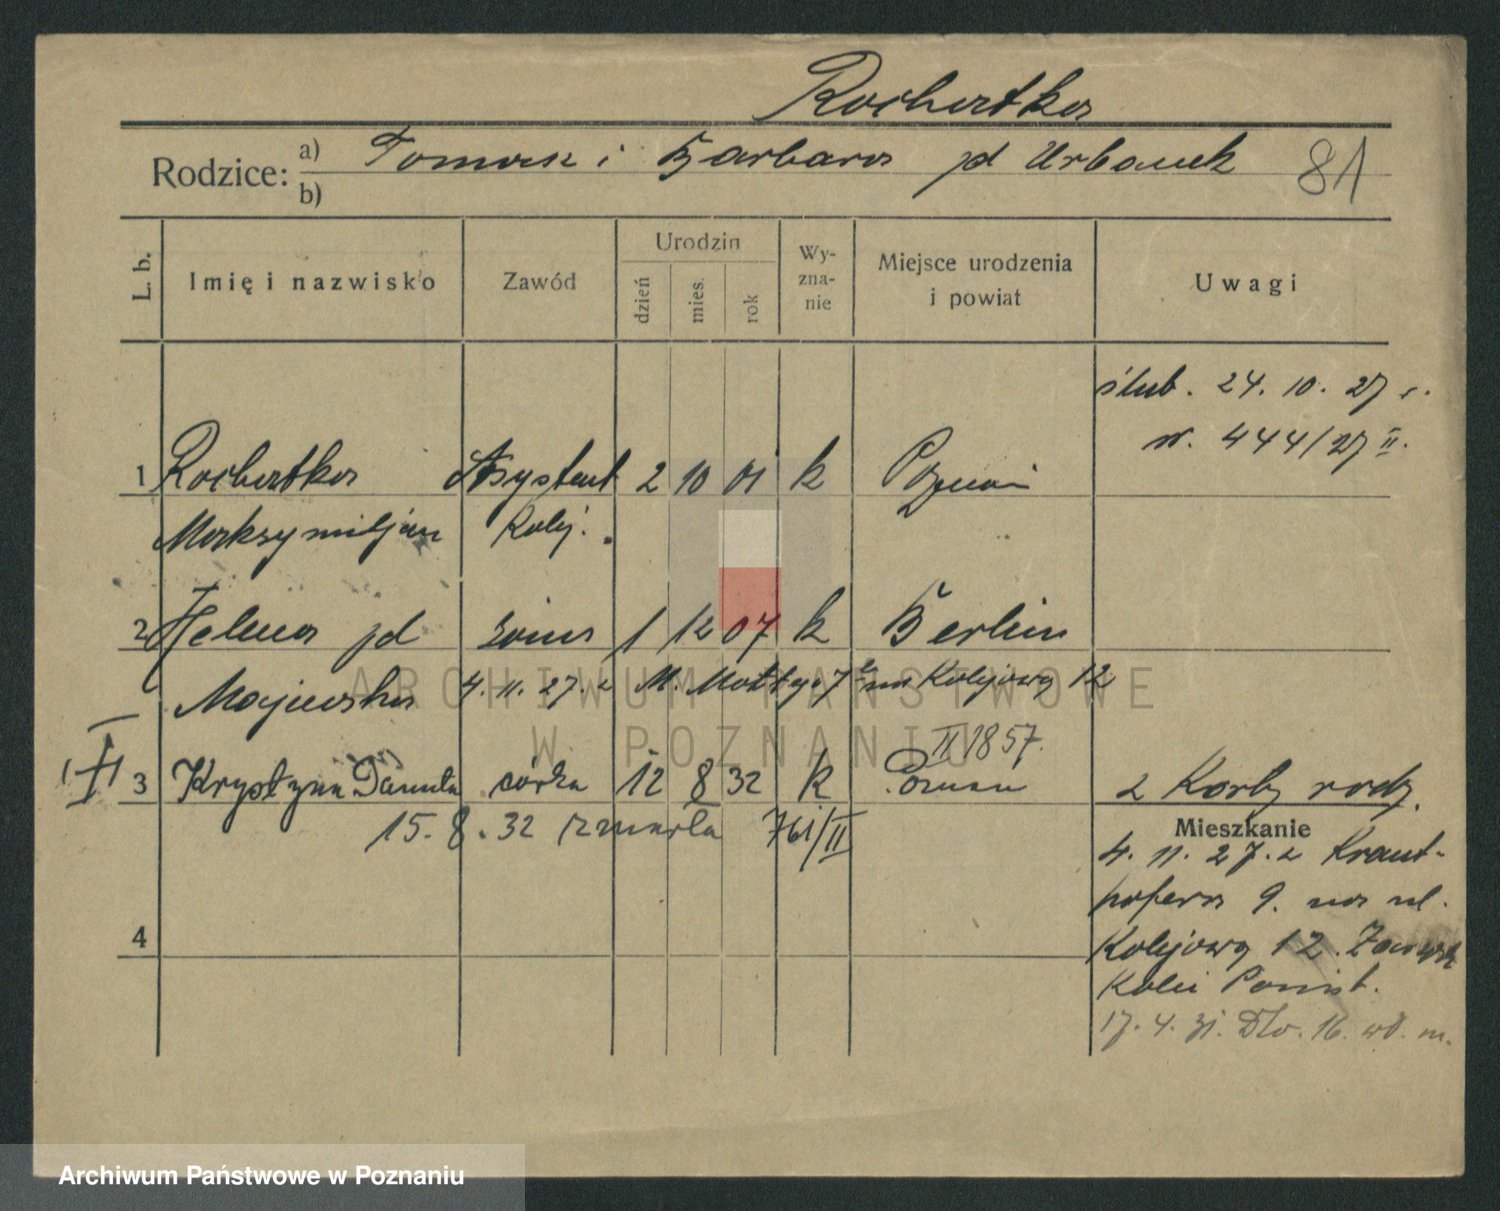 Rochertka
Rodzice: a) Tomasz i Barbara zd Urbanek 81
b)
L. b. Imię i nazwisko Zawód Urodzin dzień mies. rok Wyznanie Miejsce urodzenia i powiat Uwagi
ślub. 24. 10. 27 r.
nr. 444/27 II.
1 Rochertka Asystent 2 10 01 k Poznań
Maksymiljan Kolej.
2 Helena zd żona 1 12 07 k Berlin
Majewska 4. 11. 27. z M. Mottego 7 na Kolejową 12
II 1857.
3 Krystyna Danuta córka 12 8 32 k Poznań z Karty rodz.
15. 8. 32 zmarła 761/II
Mieszkanie
4. 11. 27. z Kraut-
hofera 9. na ul.
4 Kolejową 12.
Kolei
17. 4. 31. 16. m.
ARCHIWUM PAŃSTWOWE
W POZNANIU
Archiwum Państwowe w Poznaniu